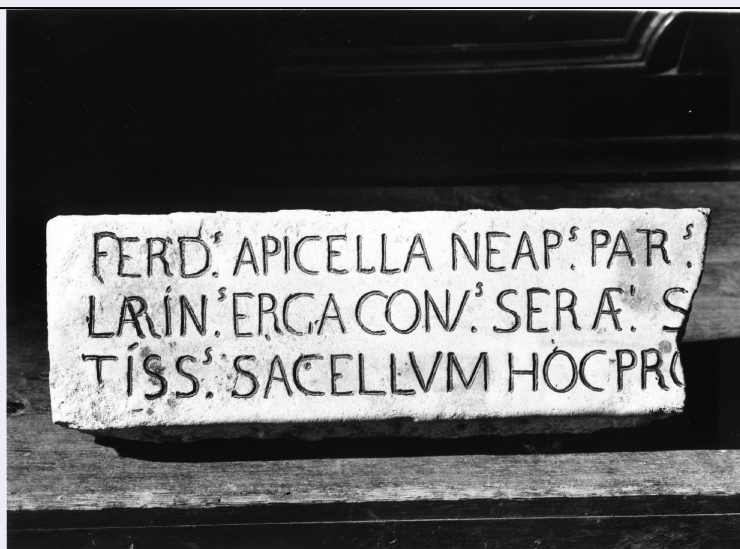 FERD.ˢ APICELLA NEAP.ˢ PATR.ˢ
LARIN.ˢ ERGA CONV.ˢ SERÆ.
TISS.ˢ SACELLVM HOC